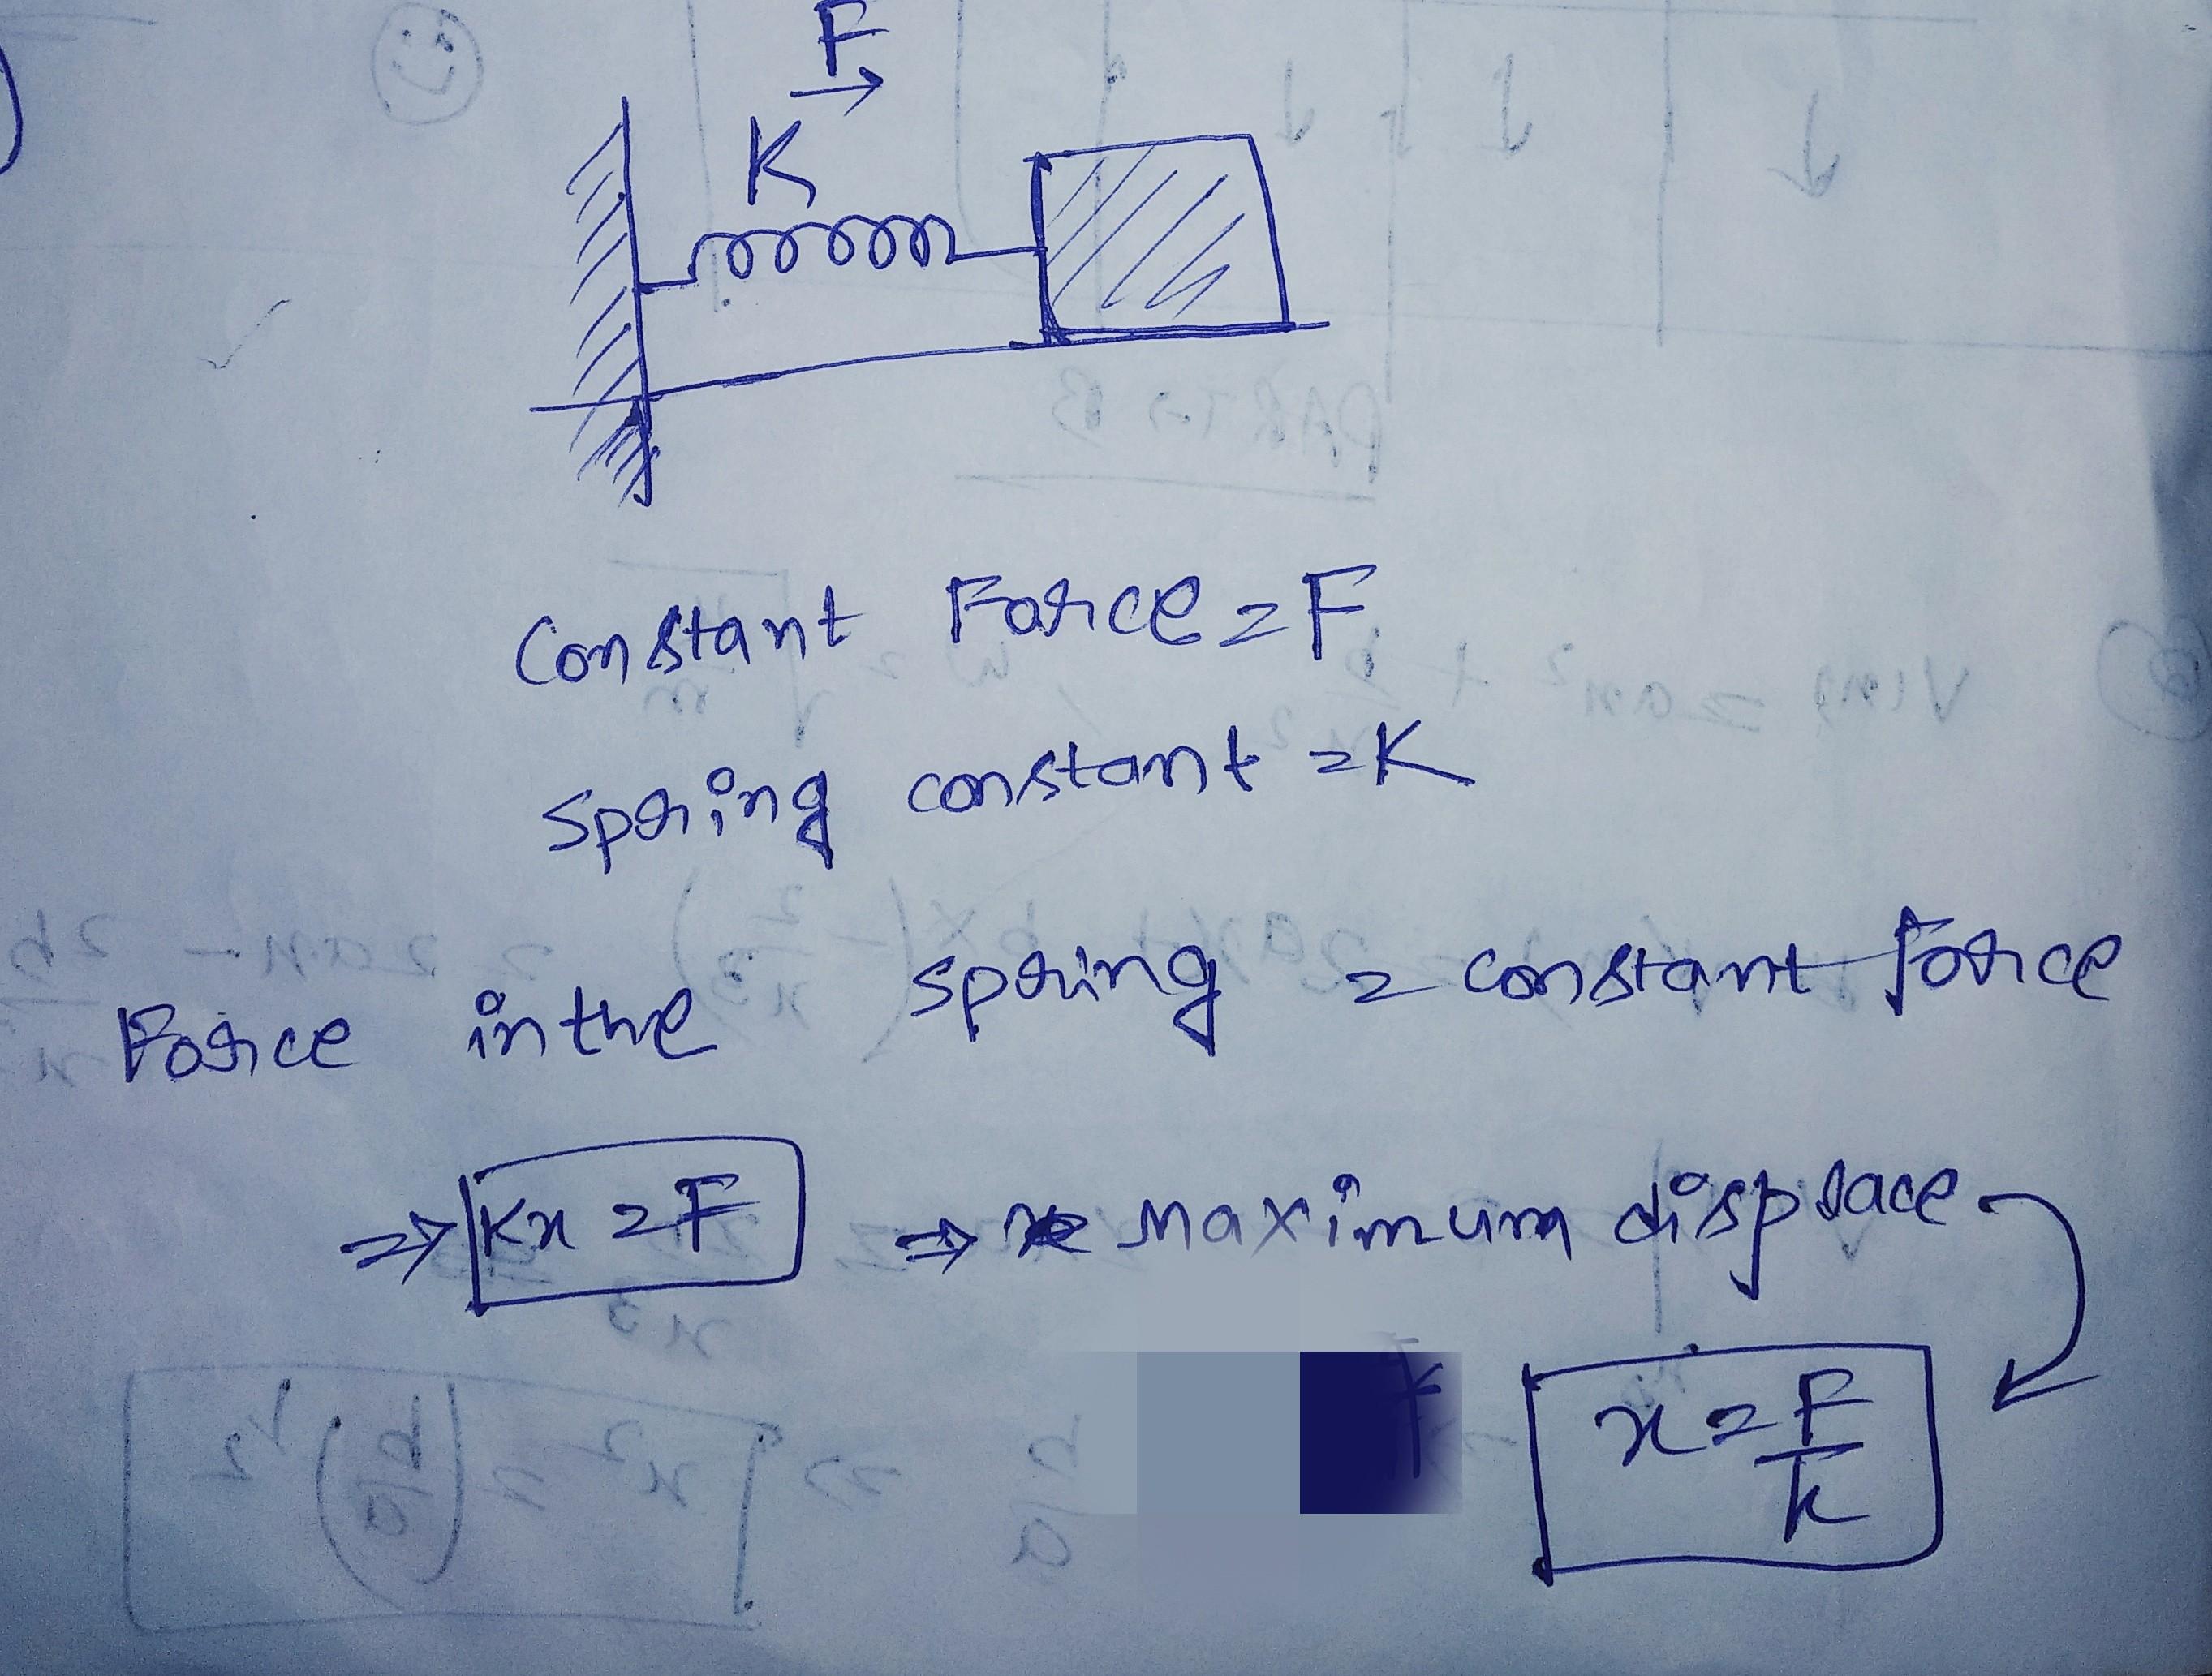 F
K
Constant Force = F
Spring constant = K
Force in the spring = constant force
⇒ Kx = F ⇒ Maximum displace
x = F/k